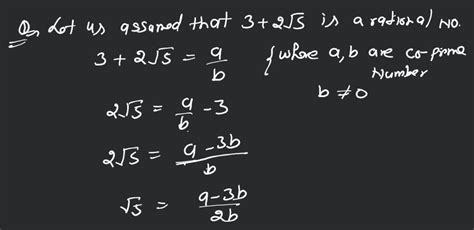 Q Let us assumed that 3+2√5 is a rational no.
3 + 2√5 = a/b {where a, b are co-prime
number
b ≠ 0
2√5 = a/b - 3
2√5 = a - 3b/b
√5 = a-3b/2b